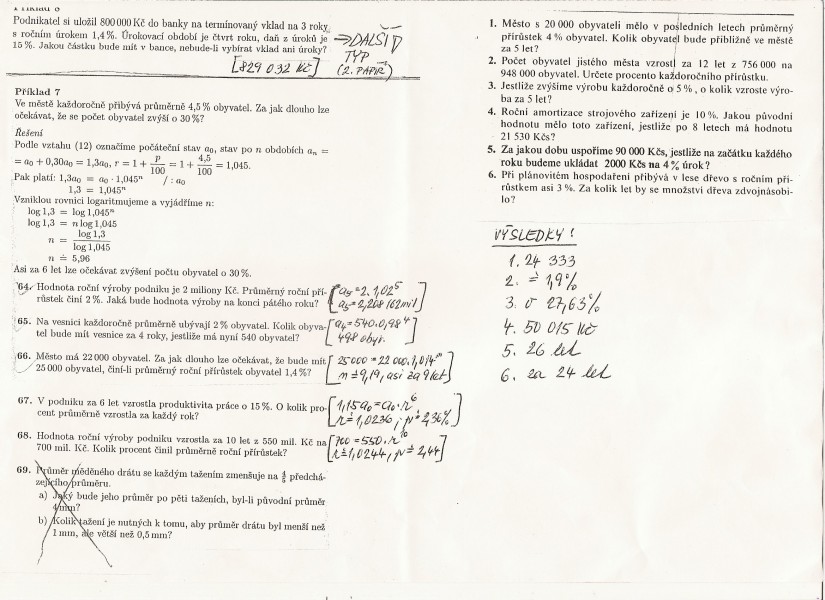 Podnikatel si uložil 800 000 Kč do banky na termínovaný vklad na 3 roky
s ročním úrokem 1,4 %. Úrokovací období je čtvrt roku, daň z úroků je
15 %. Jakou částku bude mít v bance, nebude-li vybírat vklad ani úroky?
[829 032 Kč]
⇒ DALŠÍ
TYP
(2. PAPÍR)
Příklad 7
Ve městě každoročně přibývá průměrně 4,5 % obyvatel. Za jak dlouho lze
očekávat, že se počet obyvatel zvýší o 30 %?
Řešení
Podle vztahu (12) označíme počáteční stav a₀, stav po n obdobích aₙ =
= a₀ + 0,30a₀ = 1,3a₀, r = 1 + p/100 = 1 + 4,5/100 = 1,045.
Pak platí: 1,3a₀ = a₀ · 1,045ⁿ / : a₀
1,3 = 1,045ⁿ
Vzniklou rovnici logaritmujeme a vyjádříme n:
log 1,3 = log 1,045ⁿ
log 1,3 = n log 1,045
n = log 1,3 / log 1,045
n ≐ 5,96
Asi za 6 let lze očekávat zvýšení počtu obyvatel o 30 %.
64. Hodnota roční výroby podniku je 2 miliony Kč. Průměrný roční pří-
růstek činí 2 %. Jaká bude hodnota výroby na konci pátého roku?
[a₅ = 2 . 1,02⁵
a₅ = 2,208 162 mil]
65. Na vesnici každoročně průměrně ubývají 2 % obyvatel. Kolik obyva-
tel bude mít vesnice za 4 roky, jestliže má nyní 540 obyvatel?
[a₄ = 540.0,98⁴
498 obyv.]
66. Město má 22 000 obyvatel. Za jak dlouho lze očekávat, že bude mít
25 000 obyvatel, činí-li průměrný roční přírůstek obyvatel 1,4 %?
[25 000 = 22 000 . 1,014ⁿ
n ≐ 9,19, asi za 9 let]
67. V podniku za 6 let vzrostla produktivita práce o 15 %. O kolik pro-
cent průměrně vzrostla za každý rok?
[1,15a₀ = a₀ . r⁶
r ≐ 1,0236 ; p ≐ 2,36%]
68. Hodnota roční výroby podniku vzrostla za 10 let z 550 mil. Kč na
700 mil. Kč. Kolik procent činil průměrně roční přírůstek?
[700 = 550 . r¹⁰
r ≐ 1,0244, p ≐ 2,44]
69. Průměr měděného drátu se každým tažením zmenšuje na 4/5 předchá-
zejícího průměru.
a) Jaký bude jeho průměr po pěti taženích, byl-li původní průměr
4 mm?
b) Kolik tažení je nutných k tomu, aby průměr drátu byl menší než
1 mm, ale větší než 0,5 mm?
1. Město s 20 000 obyvateli mělo v posledních letech průměrný
přírůstek 4 % obyvatel. Kolik obyvatel bude přibližně ve městě
za 5 let?
2. Počet obyvatel jistého města vzrostl za 12 let z 756 000 na
948 000 obyvatel. Určete procento každoročního přírůstku.
3. Jestliže zvýšíme výrobu každoročně o 5 %, o kolik vzroste výro-
ba za 5 let?
4. Roční amortizace strojového zařízení je 10 %. Jakou původní
hodnotu mělo toto zařízení, jestliže po 8 letech má hodnotu
21 530 Kčs?
5. Za jakou dobu uspoříme 90 000 Kčs, jestliže na začátku každého
roku budeme ukládat 2000 Kčs na 4 % úrok?
6. Při plánovitém hospodaření přibývá v lese dřevo s ročním pří-
růstkem asi 3 %. Za kolik let by se množství dřeva zdvojnásobi-
lo?
VÝSLEDKY!
1. 24 333
2. ≐ 1,9%
3. o 27,63%
4. 50 015 Kč
5. 26 let
6. za 24 let